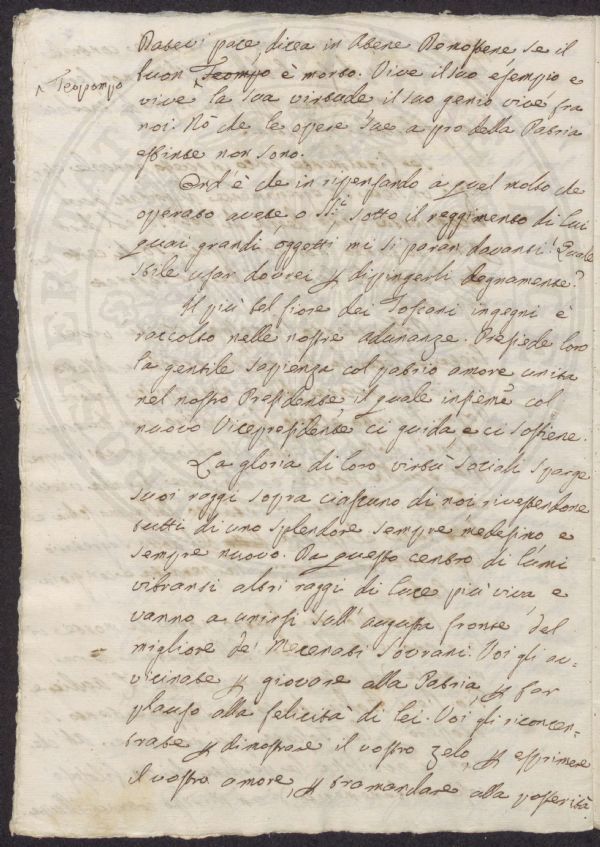 Datevi pace dicea in Atene Demostene se il
buon Teompo è morto. Vive il suo esempio e
^ Teopompo
vive la sua virtude il suo genio vive fra
noi. Nò che le opere sue a pro della Patria
estinte non sono.
Ond'è che in ripensando a quel molto che
operato avete o SSi sotto il reggimento di lui
quai grandi oggetti mi si paran davanti! Quale
stile usar dovrei p dipingerli degnamente?
Il più bel fiore dei Toscani ingegni è
raccolto nelle nostre adunanze. Presiede loro
la gentile sapienza col patrio amore unita
nel nostro Presidente, il quale insieme col
nuovo Vicepresidente ci guida, e ci sostiene.
La gloria di loro virtù sociali sparge
suoi raggi sopra ciascuno di noi rivestendone
tutti di uno splendore sempre medesimo e
sempre nuovo. Da questo centro di lumi
vibransi altri raggi di luce più viva e
vanno a unirsi sull'augusta fronte del
migliore de' Mecenati Sovrani. Voi gli av-
vicinate p giovare alla Patria, p far
plauso alla felicità di lei. Voi gli riconcen-
trate p dimostrare il vostro zelo, p esprimere
il vostro amore, p tramandare alla posterità